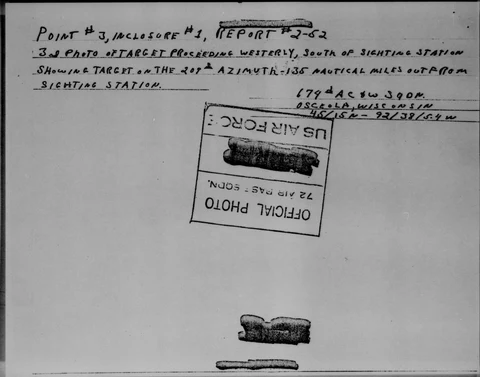 POINT #3, INCLOSURE #1, REPORT #2-52
3D PHOTO OF TARGET PROCEEDING WESTERLY, SOUTH OF SIGHTING STATION
SHOWING TARGET ON THE 207° AZIMUTH-135 NAUTICAL MILES OUT FROM
SIGHTING STATION.
674th AC&W SQDN.
OSCEOLA, WISCONSIN
45/15N - 92/38/54W
OFFICIAL PHOTO
72 AIR BASE SQDN.
US AIR FORCE